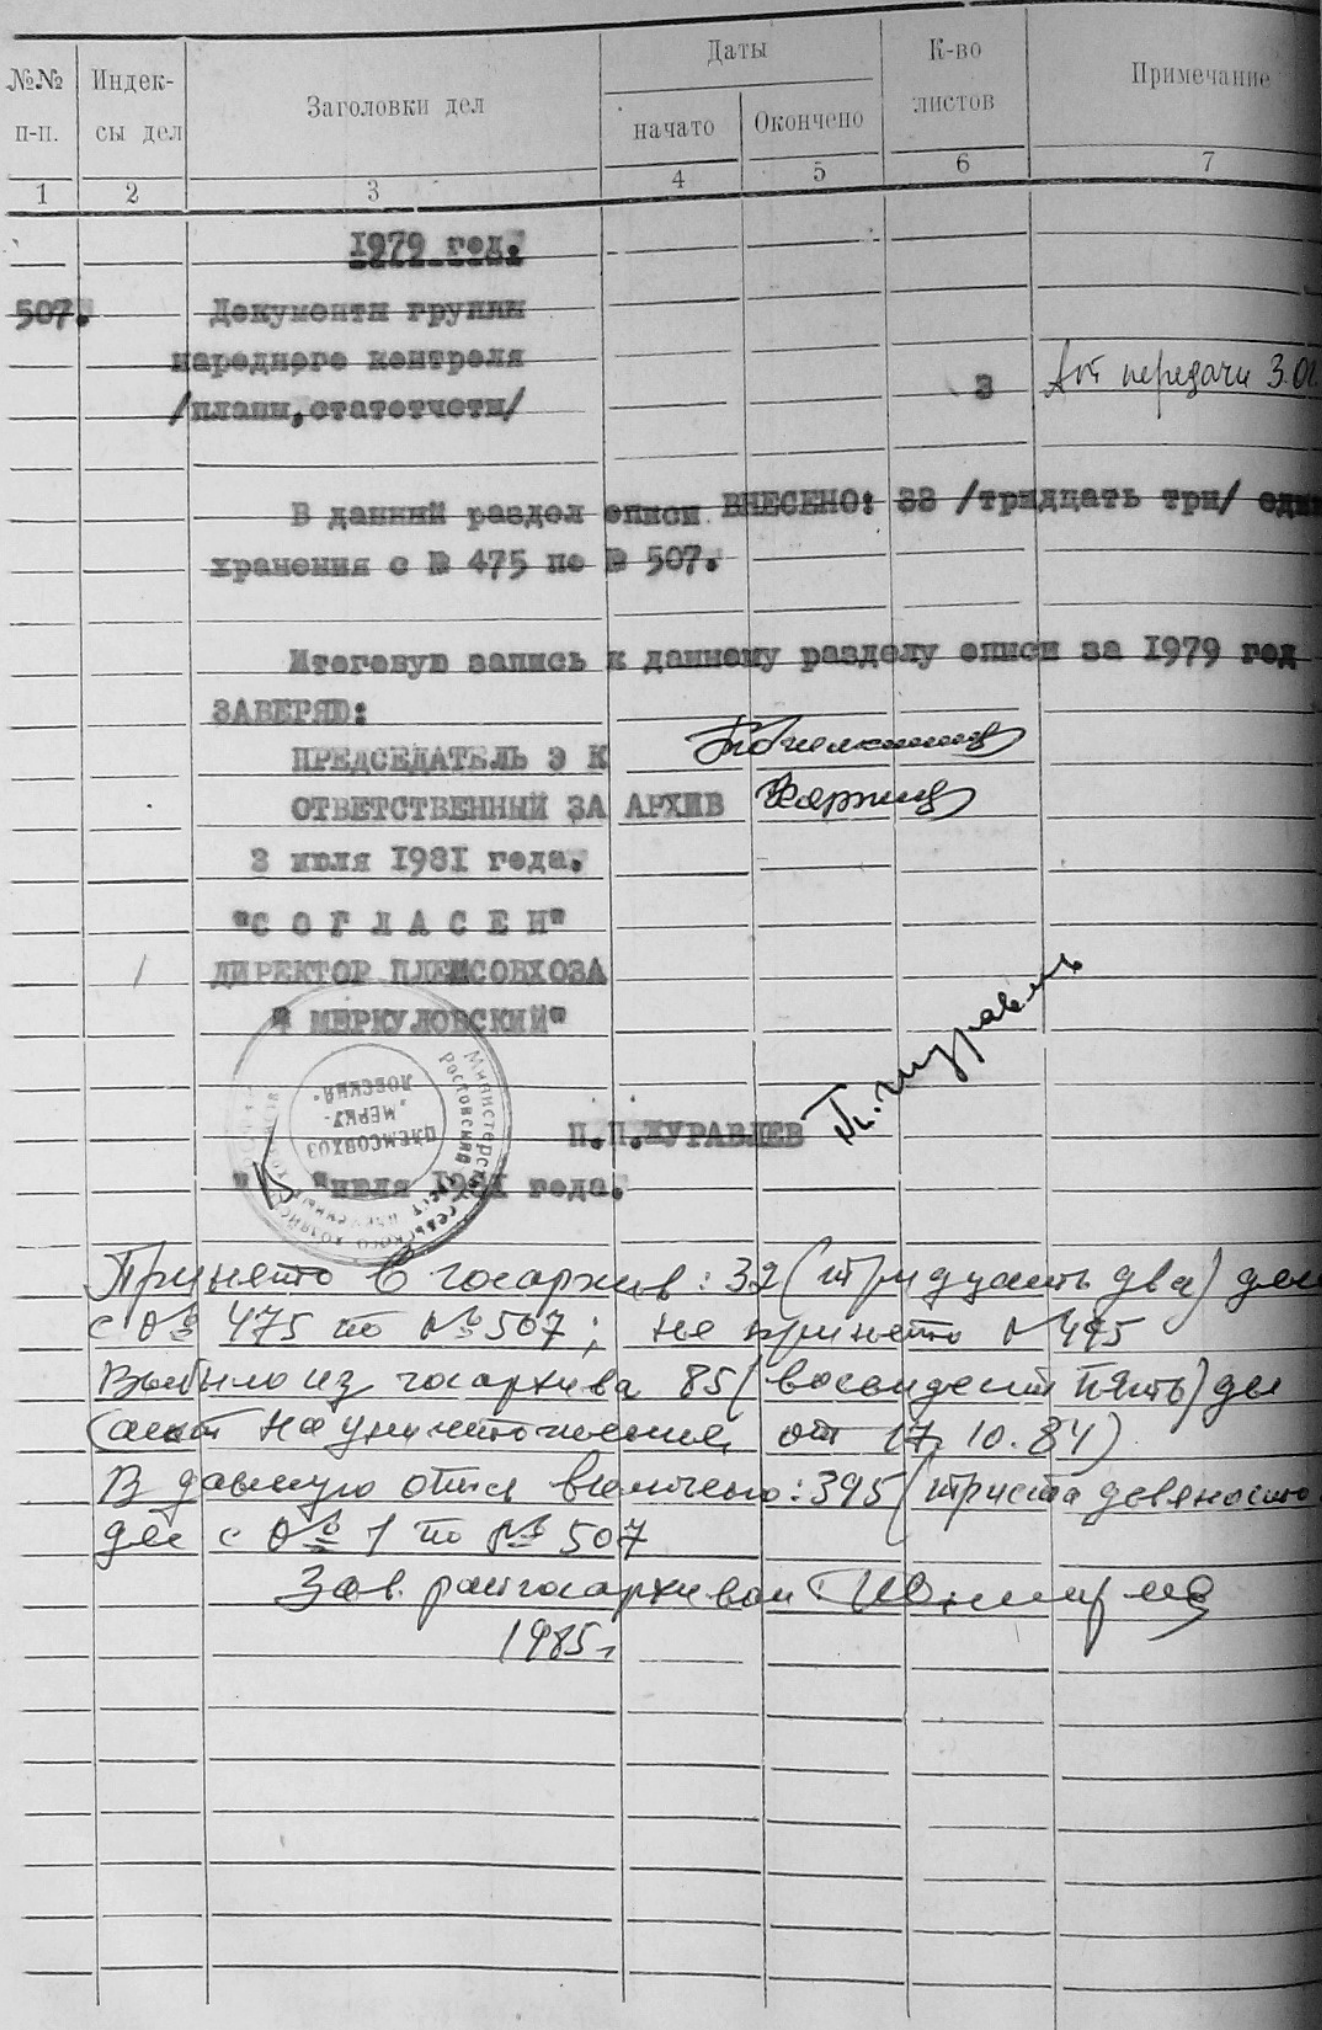 №№ п-п.
Индек-
сы дел
Заголовки дел
Даты
начато
Окончено
К-во
листов
Примечание
1 2 3 4 5 6 7
1979 год.
507. Документы группы
народного контроля
/планы,статотчеты/ 3 Акт передачи 3.01.
В данный раздел описи ВНЕСЕНО: 33 /тридцать три/ един
хранения с № 475 по № 507.
Итоговую запись к данному разделу описи за 1979 год
ЗАВЕРЯЮ:
ПРЕДСЕДАТЕЛЬ Э К
ОТВЕТСТВЕННЫЙ ЗА АРХИВ
3 июля 1981 года.
"С О Г Л А С Е Н"
ДИРЕКТОР ПЛЕМСОВХОЗА
" МЕРКУЛОВСКИЙ"
Министерство сельского хозяйства
Ростовский
ПЛЕМСОВХОЗ
"МЕРКУ-
ЛОВСКИЙ"
П.П.ЖУРАВЛЕВ
" 15 "июля 1981 года.
Принято в госархив: 32 (тридцать два) дел
с № 475 по № 507; не принято № 495
Выбыло из госархива 85 (восемдесят пять) де
(акт на уничтожение от 17.10.84)
В данную опись включено: 395 (триста девяносто
дел с № 1 по № 507
Зав. райгосархивом
1985г